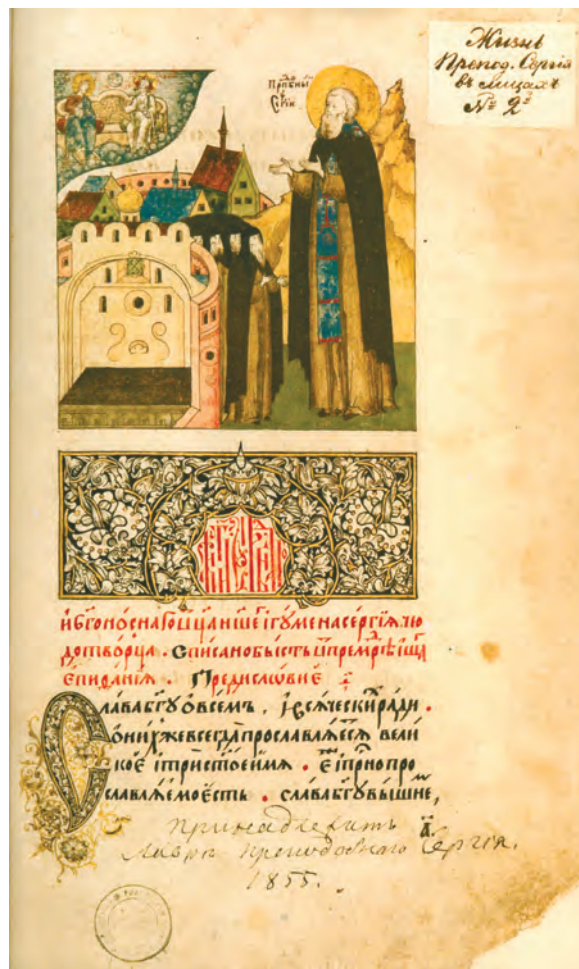 Жизнь
Препод. Сергія
въ лицахъ
№ 2й
Прⷣпбныⷤ
Серги
и҆бг҃оноснагоѡц҃анш҃егⷪ҇ і҆гꙋ́менасе́ргїѧ. чю
дотво́рца . Списанобы́сть ѿпремⷣрѣ́ишаⷢ҇
Епифа́нїѧ . Предисло́вїе
Славабг҃ꙋ ѡ҆всемъ , і҆всѧ́ческиⷯради .
ѡ҆ни́хжевсегда̀прославлѧ́етсѧ вели
кое і҆трист҃о́еи́мѧ . е҆́же і҆прⷭ҇нопро
славлѧ́емоесть . славабг҃ꙋвы́шнеⷨ,
а҃
Принадлежитъ
Лаврѣ Преподобнаго Сергія.
1855.